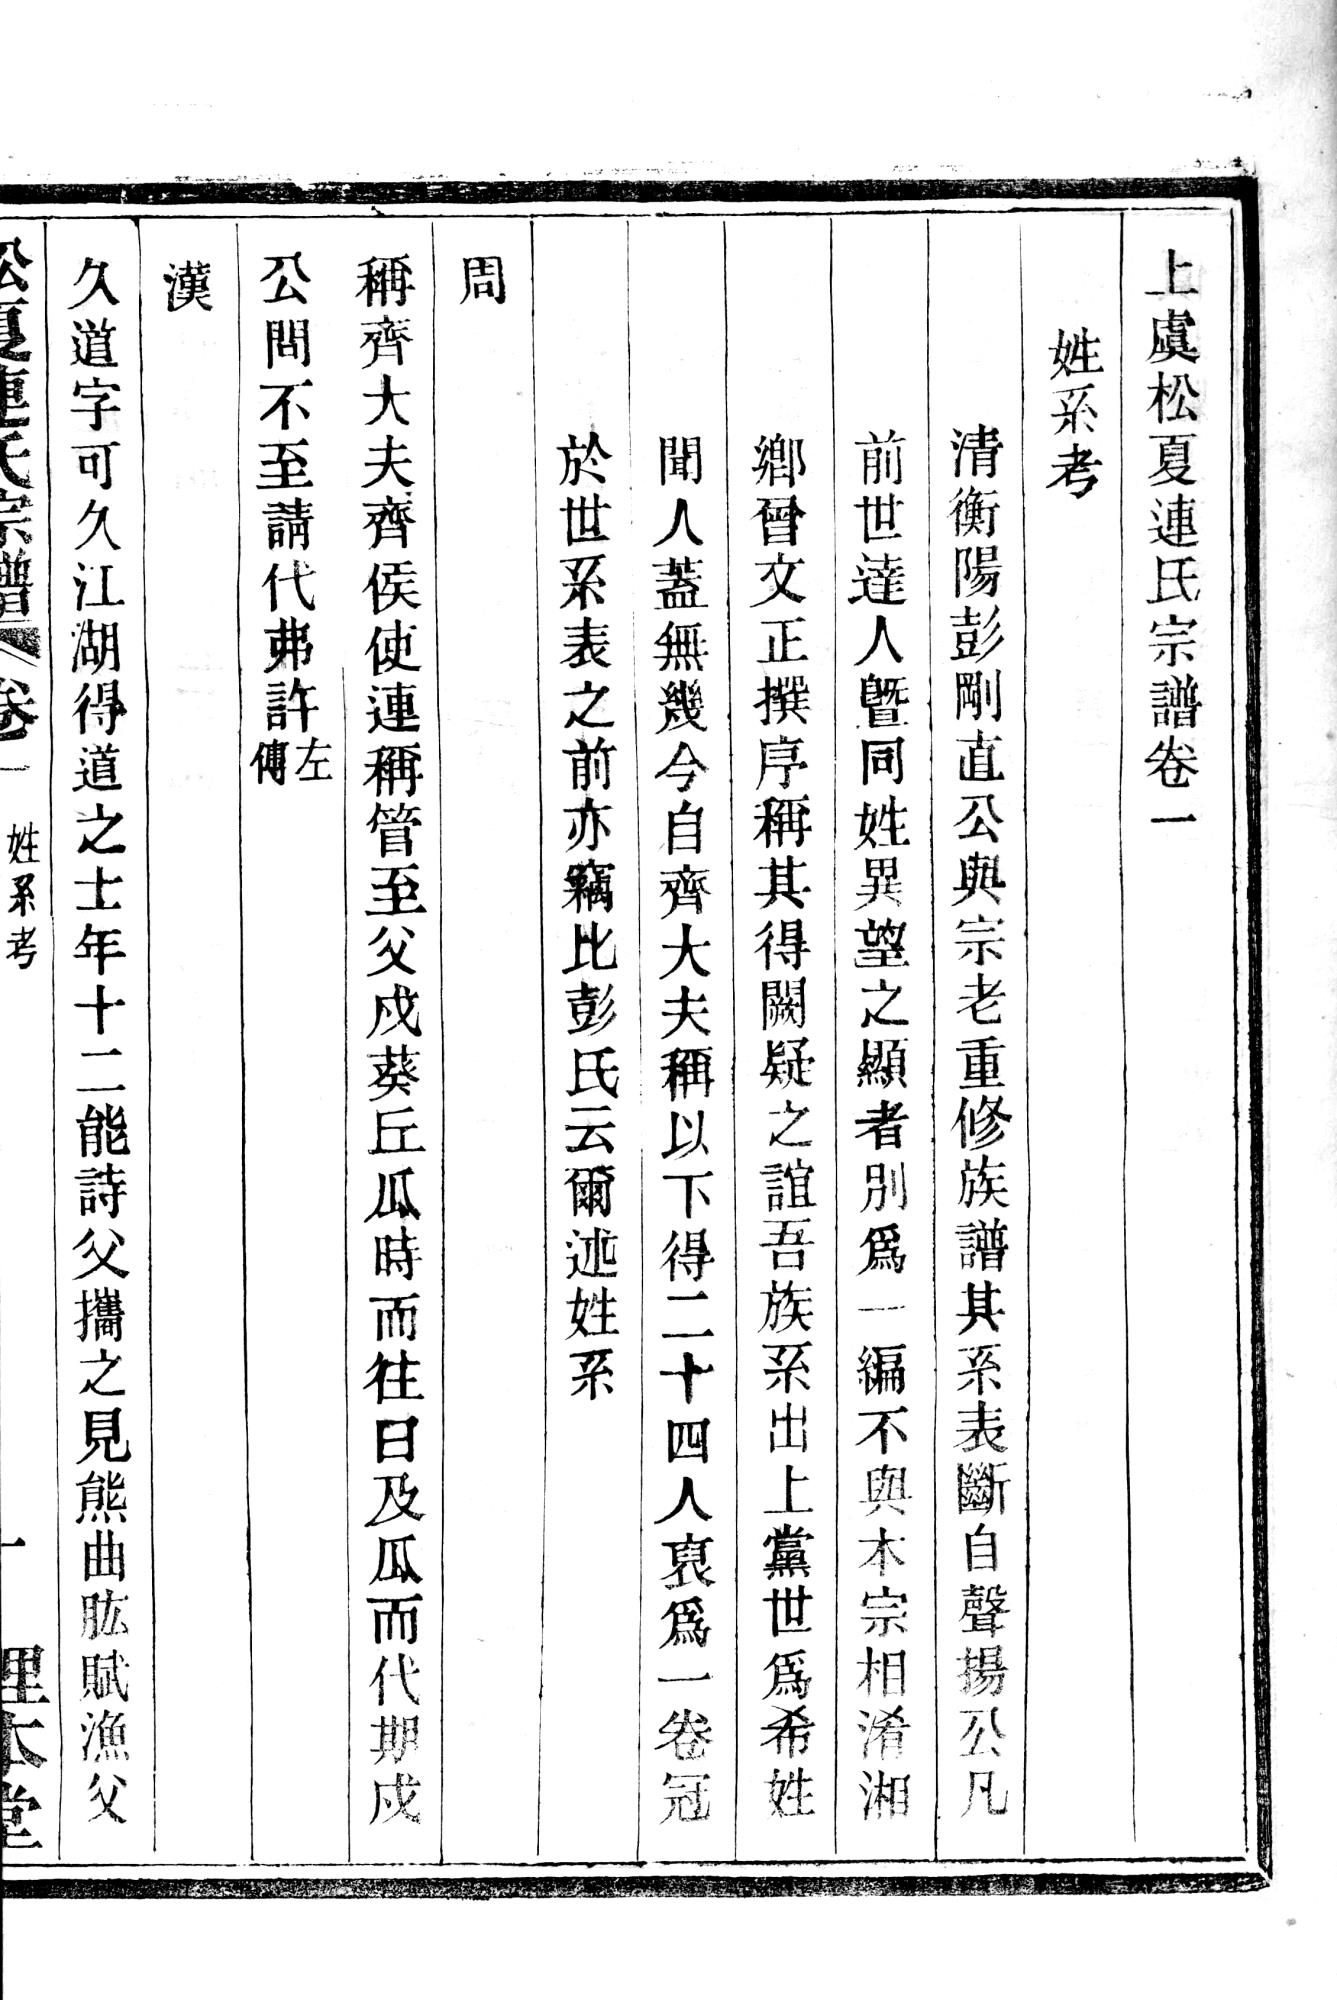 上虞松夏連氏宗譜卷一
姓系考
清衡陽彭剛直公與宗老重修族譜其系表斷自聲揚公凡
前世達人曁同姓異望之顯者別爲一編不與本宗相淆湘
鄕曾文正撰序稱其得闕疑之誼吾族系出上黨世爲希姓
聞人蓋無幾今自齊大夫稱以下得二十四人裒爲一卷冠
於世系表之前亦竊比彭氏云爾述姓系
周
稱齊大夫齊侯使連稱管至父戍葵丘瓜時而往曰及瓜而代期戍
公問不至請代弗許左傳
漢
久道字可久江湖得道之士年十二能詩父攜之見熊曲肱賦漁父
松夏連氏宗譜 卷一 姓系考 一 理本堂